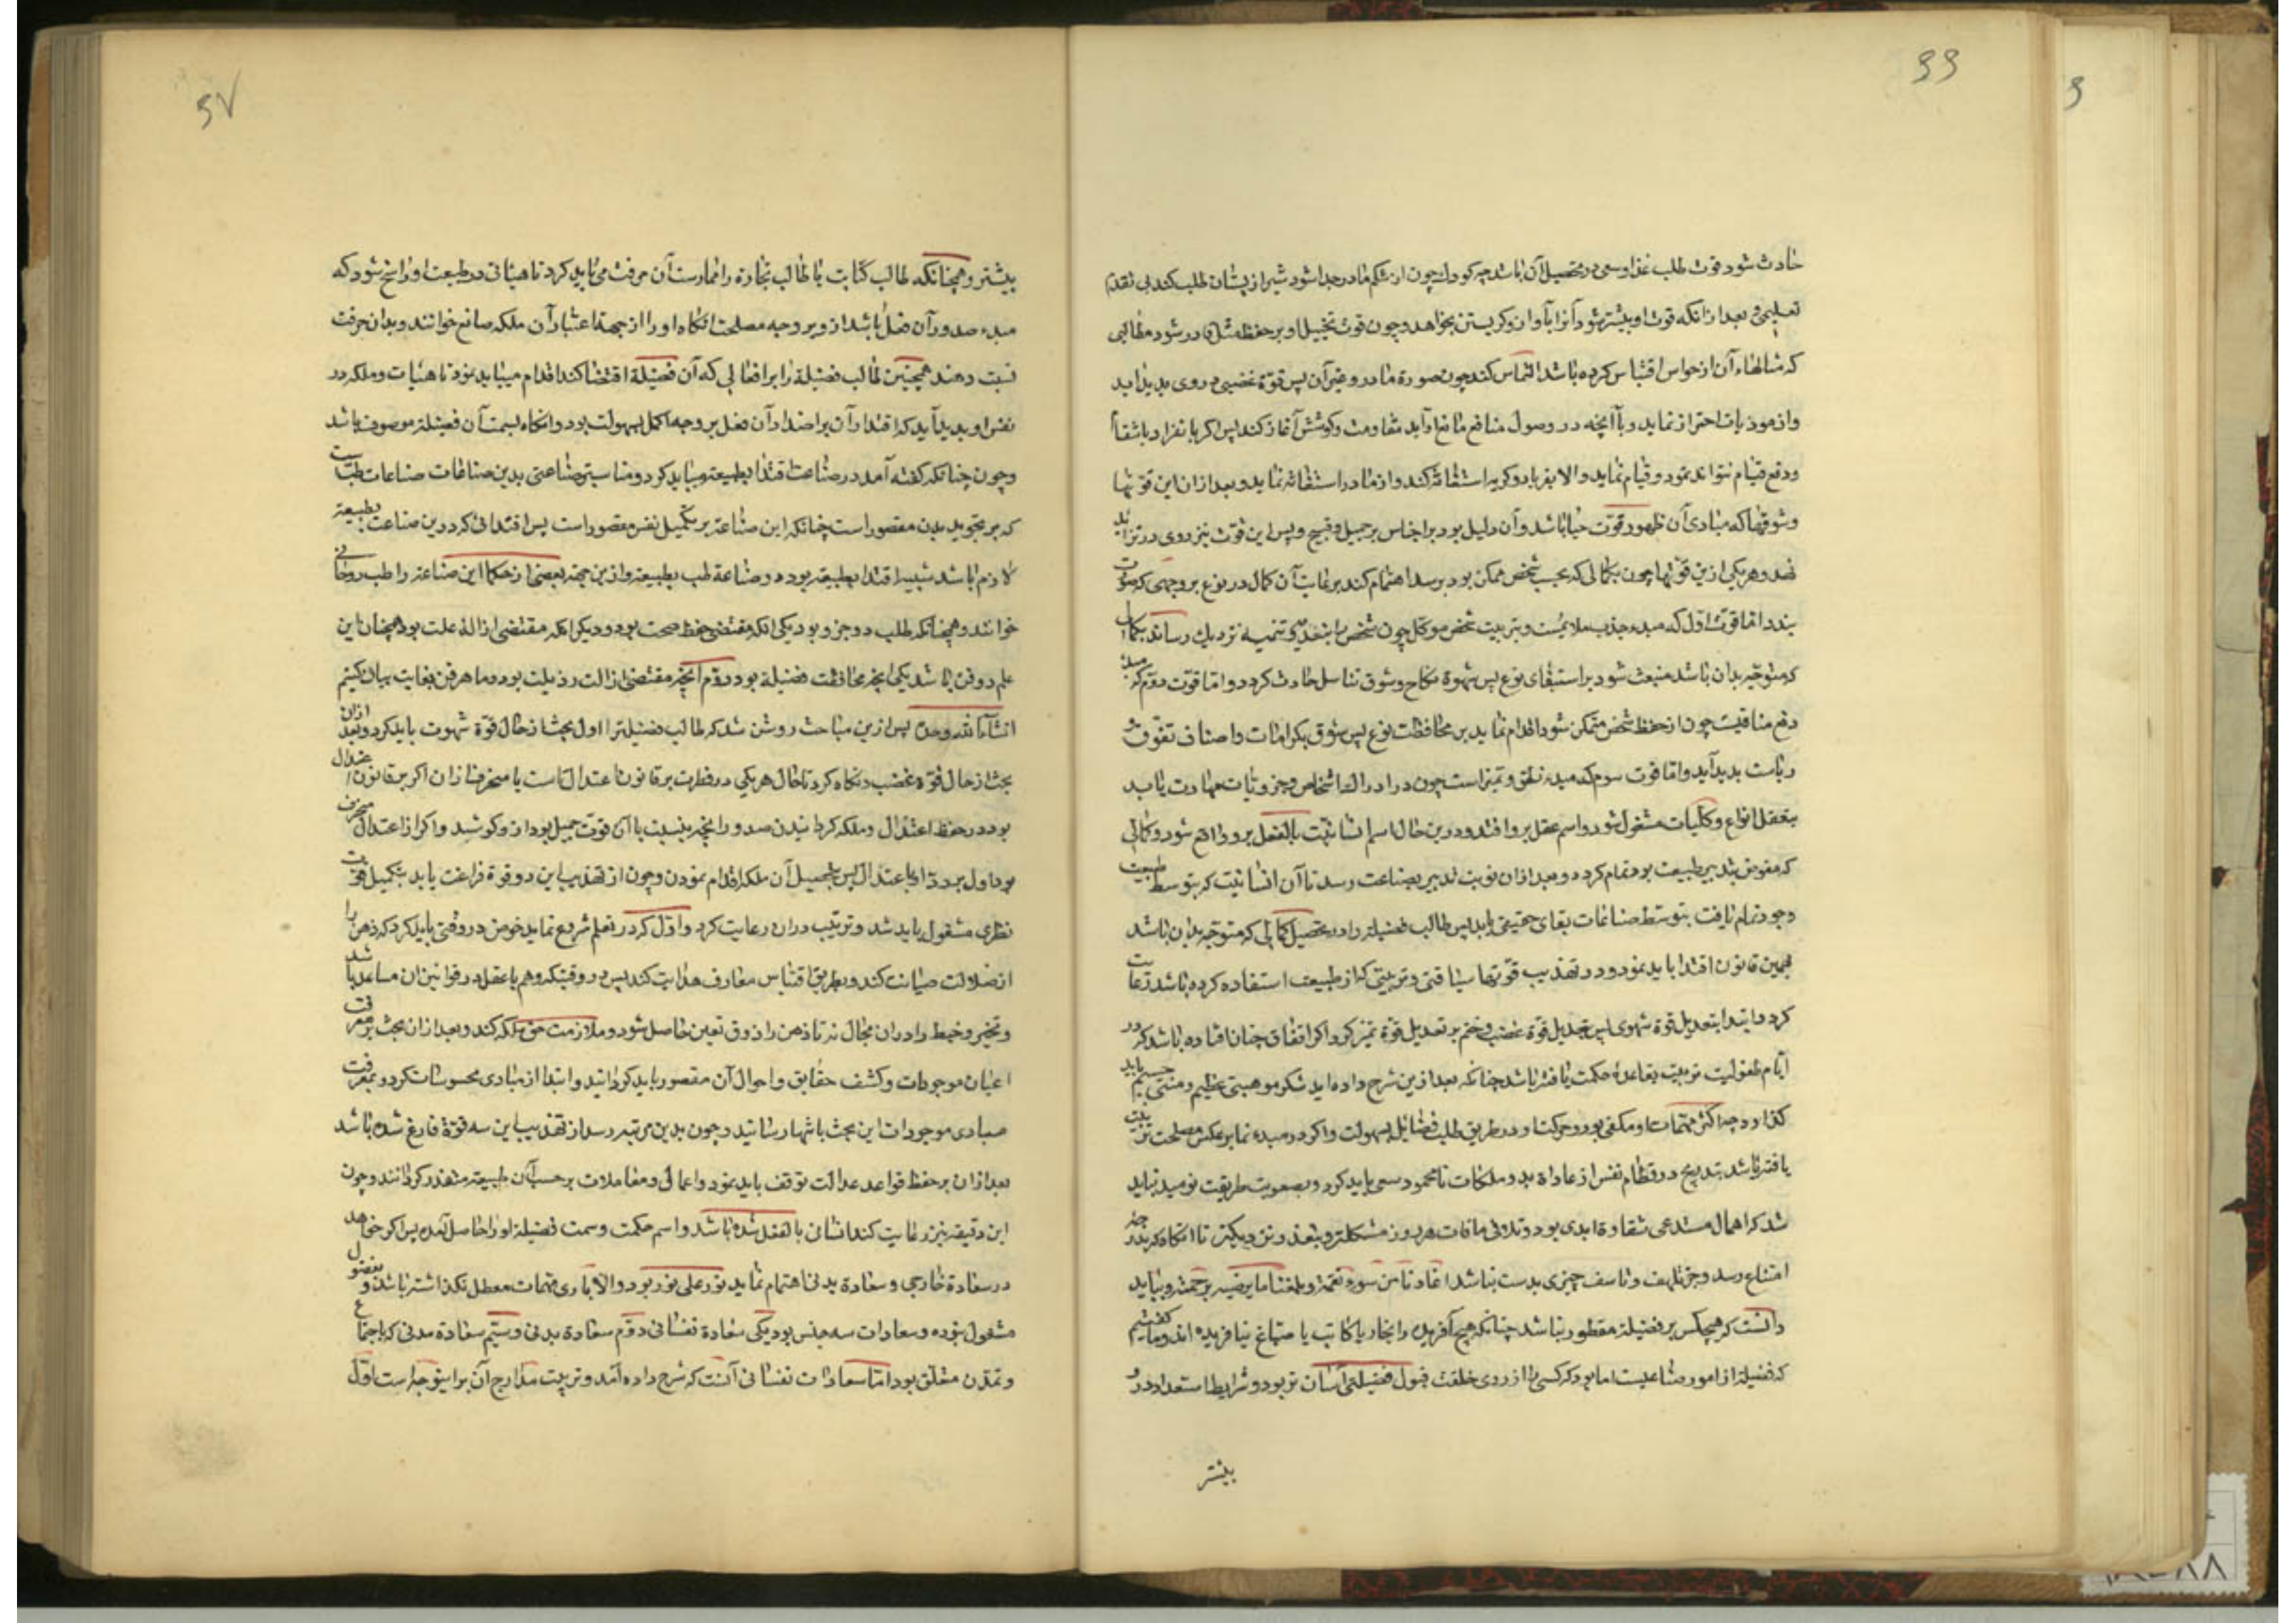 ۶۶
حادث شود قوت طلب غذا و سعی در تحصیل آن باشد چه کودک چون از شکم مادر جدا شود شیر از پستان طلب کند بی تقدم
تعلیمی و بعد از آنکه قوت او بیشتر شود آنرا بآواز و کریستن بخواهد و چون قوت تخییل او بر حفظ مثل قادر شود مطالبی
که مثالهاء آن از حواس اقتباس کرده باشد التماس کند چون صورة مادر و غیر آن پس قوّة غضبی در وی پدید آید
و از موذیات احتراز نماید و با آنچه در وصول منافع مانع آید مقاومت و کوشش آغاز کند پس اگر بانفراد بانتقام
و دفع قیام تواند نمود قیام نماید و الا بفریاد و کریه استغاثه کند و از مادر استغاثه نماید و بعد از ان این قوتها
و شوقها که مبادی آن ظهور قوّت حیا باشد و آن دلیل بود بر احساس بر جمیل و قبیح و پس این قوت نیز روی در تزاید
نهد و هر یکی ازین قوتها چون بکمالی که بحسب شخص ممکن بود برسد اهتمام کند برعایت آن کمال در نوع بر وجهی که صورت
بندد امّا قوت اول که مبدء جذب ملائم است و بتربیت شخص موکل چون شخص را بتغذیه و تنمیه نزدیک رساند بکمال
که متوجه بدان باشد منبعث شود بر استبقای نوع پس شهوة نکاح و شوق تناسل حادث کردد و امّا قوّت دوّم که مبدء
دفع منافیست چون از حفظ شخص متمکن شود اقدام نماید بر محافظت نوع پس شوق بکرامات و اصناف تفوق و
ریاست پدید آید و امّا قوت سوم که مبدء نطق و تمیز است چون در ادراک اشخاص و جزویات مهارت یابد
بتعقل انواع و کلّیات مشغول شود و اسم عقل برو افتد و درین حال اسم انسانیّت بالفعل برو واقع شود و کمالی
که مفوض بتدبیر طبیعت بود تمام کردد و بعد از ان نوبت تدبیر بصناعت رسد تا آن انسانیّت که بتوسط طبیعت
وجود تمام یافت بتوسط صناعات بقای حقیقی یابد پس طالب فضیلة را در تحصیل کمالی که متوجّه بدان باشد
بهمین قانون اقتدا باید نمود و در تهذیب قوتها سیاقتی و ترتیبی که از طبیعت استفاده کرده باشد رعایت
کرد و ابتدا بتعدیل قوة شهوی پس بتعدیل قوّة غضب و ختم بر تعدیل قوّة تمیز کرد و اگر اتفاق چنان افتاده باشد که در
ایّام طفولیت تربیت بقاعدهٔ حکمت یافته باشد چنانکه بعد ازین شرح داده آید شکر موهبتی عظیم و منتی جسیم باید
کذارد چه اکثر مهمّات او مکفی بود و حرکت او در طریق طلب فضایل بسهولت و اگر در مبدء نما بر عکس مصلحت تربیت
یافته باشد بتدریج در فطام نفس از عاداة بد و ملکات نامحمود سعی باید کرد و بصعوبت طریقت نومید نباید
شد که اهمال مستدعی شقاوة ابدی بود و تلافی مافات هر روز مشکلتر و بتعذر نزدیکتر تا آنکاه که بدرجهٔ
امتناع رسد و جز تلهف و تاسف چیزی بدست نباشد اعاذنا من سوء نقمته و بلغنا ما یرضیه برحمته و بباید
دانست که هیچکس بر فضیلة مفطور نباشد چنانکه هیچ آفریده را نجار یا کاتب یا صباغ نیافریده‌اند و ما کفته‌ایم
که فضیلة از امور صناعیست اما بود که کسی را از روی خلقت قبول فضیلتی آسان تر بود و شرایط استعداد در و
بیشتر
۶۷
بیشتر و همچنانکه طالب کتابت یا طالب تجارة را ممارست آن حرفت می باید کرد تا هیأتی در طبیعت او راسخ شود که
مبدء صدور آن فعل باشد ازو بر وجه مصلحت آنکاه او را از جهة اعتبار آن ملکه صانع خوانند و بدان حرفت
نسبت دهند همچنین طالب فضیلة را بر افعالی که آن فضیلة اقتضا کند اقدام میباید نمود تا هیأت و ملکه در
نفس او پدید آید که اقتدار آن بر اصدار آن فعل بر وجه اکمل بسهولت بود و آنکاه بسمت آن فضیلة موصوف باشد
و چون چنانکه کفته آمد در صناعت اقتدا بطبیعة میباید کرد و مناسبترین صناعتی بدین صناعات صناعت طبّست
که بر تجوید بدن مقصور است چنانکه این صناعة بر تکمیل نفس مقصور است پس اقتدائی که درین صناعت بطبیعة
لازم باشد شبیه اقتدا بطبیعة بود در صناعة طب بطبیعة و ازین جهة بعضی از حکما این صناعة را طب روحانی
خوانند و همچنانکه طلب دو جزو بود یکی آنکه مقتضی حفظ صحت بود و دیکر آنکه مقتضی ازالهٔ علت بود همچنان این
علم دو فن باشد یکی آنچه محافظت فضیلة بود دوّم آنچه مقتضی ازالت رذیلت بود و ما هر فن بغایت بیان کنیم
انشاء الله وحده پس ازین مباحث روشن شد که طالب فضیلترا اول بحث از حال قوّة شهوت باید کرد و بعد ازان
بحث از حال قوّة غضب و نکاه کرد تا حال هر یکی در فطرت بر قانون اعتدال است یا منحرف ازان اکر بر قانون اعتدال
بود در حفظ اعتدال و ملکه کردانیدن صدور آنچه بنسبت با آن قوت جمیل بود ازو کوشید و اکر از اعتدال منحرف
بود اول برد او با اعتدال پس بتحصیل آن ملکه اقدام نمودن و چون از تهذیب این دو قوة فراغت یابد بتکمیل قوّت
نظری مشغول باید شد و ترتیب دران رعایت کرد و اوّل که در تعلم شروع نماید خوض در فنّی باید کرد که ذهن را
از ضلالت صیانت کند و بطریق اقتباس معارف هدایت کند پس در وقتیکه وهم با عقل در قوانین ان مساعد باشد
و تخیر و خبط را دران مجال نه تا ذهن را ذوق تعین حاصل شود و ملازمت حق ملکه کند و بعد از ان بحث بر معرفت
اعیان موجودات و کشف حقایق و احوال آن مقصور باید کردانید و ابتدا از مبادی محسوسات کرد و بمعرفت
مبادی موجودات این بحث بانتها رسانید و چون بدین مرتبه رسد از تهذیب این سه قوّة فارغ شده باشد
بعد ازان بر حفظ قواعد عدالت توقف باید نمود و اعمال و معاملات بر حسب آن طبیعة مقدر کردانند و چون
این دقیقه نیز رعایت کند انسانی بالفعل شده باشد و اسم حکمت و سمت فضیلة او را حاصل آمده پس اکر خواهد
در سعادة خارجی و سعادة بدنی اهتمام نماید نور علی نور بود و الا باری مهمات معطل نکذاشته باشد و بفضول
مشغول نبوده و سعادات سه جنس بود یکی سعادة نفسانی دوّم سعادة بدنی و سیّم سعادة مدنی که باجتماع
و تمدّن متعلق بود امّا سعادات نفسانی آنست که شرح داده آمد و ترتیب مدارج آن برا ینوجه است اوّل